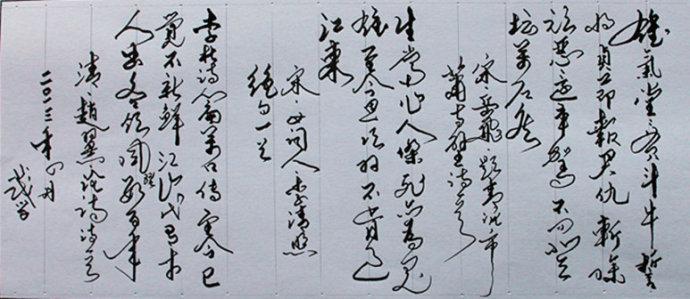 雄氣堂堂貫斗牛誓
将貞節報君仇斬除
頑惡還車駕不問登
壇萬户侯
宋岳飛題青泥市
蕭寺壁詩一首
生當作人傑死亦為鬼
雄至今思項羽不肯過
江東
宋女詞人李清照
絕句一首
李杜詩篇萬口傳至今已
覺不新鮮江山代有才
人出各領風騷數百年
清趙翼論詩詩一首
二〇一三年四月